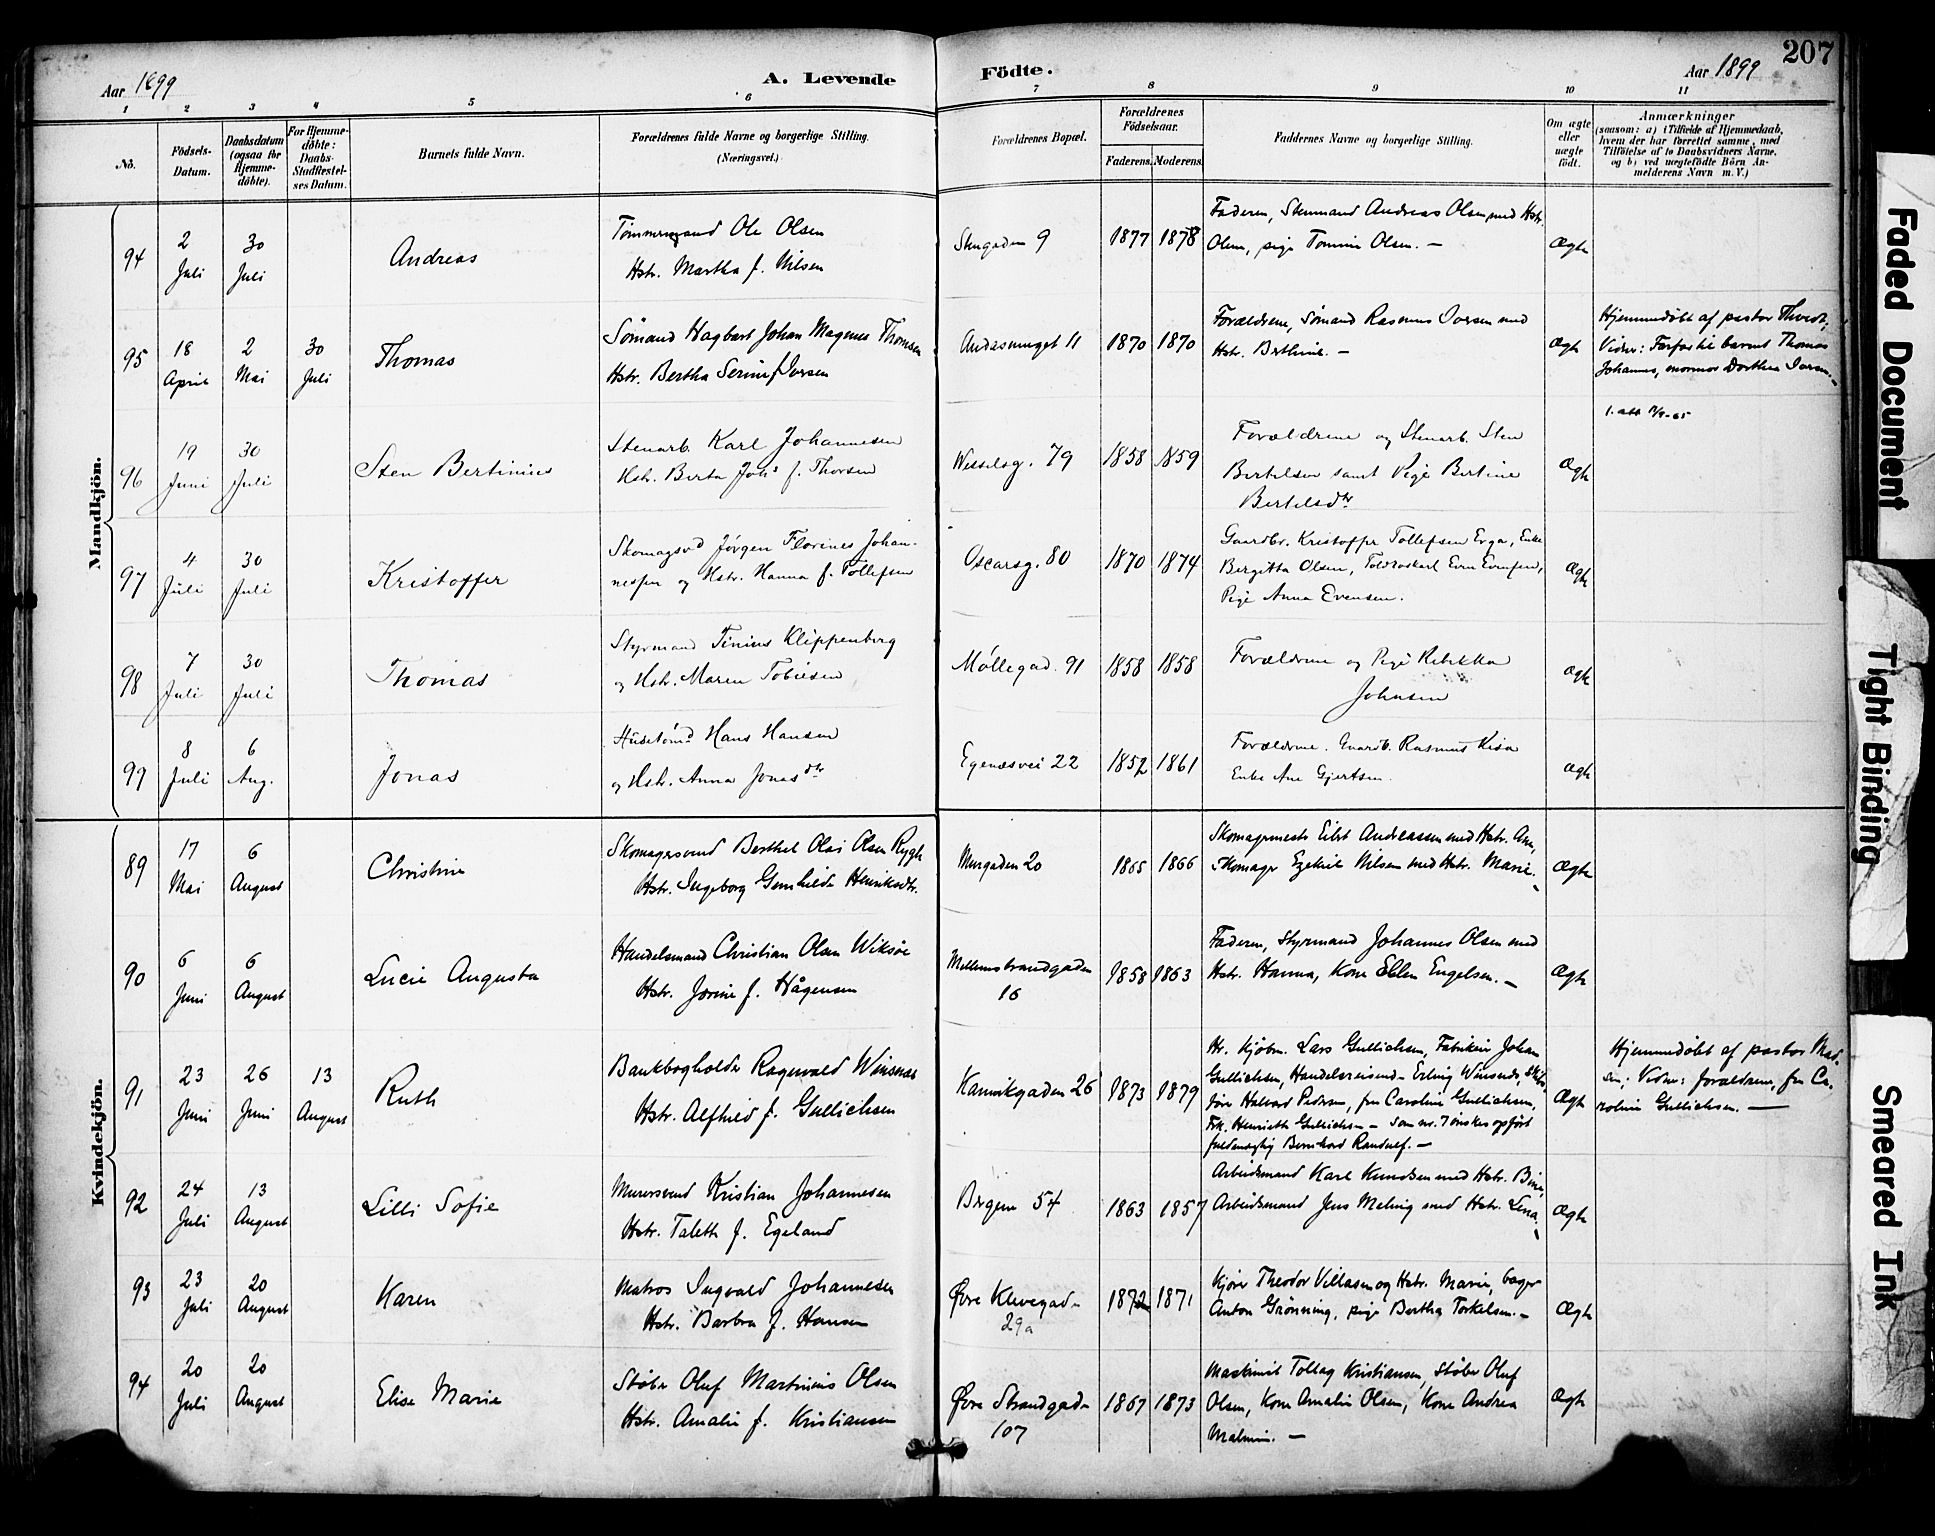 207
Aar 1899
A. Levende Födte.
Aar 1899
1 2 3 4 5 6 7 8 9 10 11
No.
Födsels-Datum.
Daabsdatum (ogsaa för Hjemme-döbte).
For Hjemme-döbte: Daabs-Stadfæstel-ses Datum.
Barnets fulde Navn.
Forældrenes fulde Navne og borgerlige Stilling. (Næringsvei.)
Forældrenes Bopæl.
Forældrenes Födselsaar.
Faderens. Moderens.
Faddernes Navne og borgerlige Stilling.
Om ægte eller uægte födt.
Anmærkninger
(saasom: a) i Tilfælde af Hjemmedaab,
hvem der har forrettet samme, med
Tilföielse af to Daabsvidners Navne,
og b) ved uegtefödte Börn An-
melderens Navn m. V.)
Mandkjön.
94
2 Juli
30 Juli
Andreas
Tømmermand Ole Olsen
Hstr. Martha f. Nilsen
9
1877 1878
Faderen, Stenmand Andreas Olsen med Hstr.
Olene, pige Tomine Olsen. —
Ægte
95
18 April
2 Mai
30 Juli
Thomas
Sömand Hagbart Johan Magnus Thomsen
Hstr. Bertha Serine f. Iversen
11
1870 1870
Forældrene, Sömand Rasmus Iversen med
Hstr. Berthine. —
Ægte
Hjemmedöbt af pastor
Vidner: Farfar til barnet Thomas
Johannes, mormor Dorthea Iversen. —
96
19 Juni
30 Juli
Sten Bertinius
Stenarb. Karl Johannesen
Hstr. Berta Johs f. Thorsen
Wesselsg. 79
1858 1859
Forældrene og Stenarb. Sten
Bertelsen samt Pige Bertine
Bertelsdtr
Ægte
97
4 Juli
30 Juli
Kristoffer
Skomagsvd Jörgen Florines Johan-
nesen og Hstr. Hanna f. Tollefsen
Oscarsg. 80
1870 1874
Gaardbr. Kristoffer Tollefsen Erga, Enke
Bergitta Olsen, Toldroskarl Even Evensen,
Pige Anna Evensen.
Ægte
98
7 Juli
30 Juli
Thomas
Styrmand Tinius Klippenberg
og Hstr. Maren Tobiesen
Møllegad. 91
1858 1858
Forældrene og Pige Rebekka
Johnsen
Ægte
99
8 Juli
6 Aug.
Jonas
Hans Hansen
og Hstr. Anna Jonasdtr
Egenæsvei 22
1852 1861
Forældrene. Gaardb. Rasmus Risa
Enke Ane Gjertsen.
Ægte
Kvindekjön.
89
17 Mai
6 August
Christine
Skomagersvend Berthel Olai Olsen Rygh
Hstr. Ingeborg Gunhilde Henriksdtr.
Murgaden 20
1865 1866
Skomagermestr Eilert Andreassen med Hstr. Ane,
Skomager Ezekiel Nilsen med Hstr. Marie. —
Ægte
90
6 Juni
6 August
Lucie Augusta
Handelsmand Christian Olsen Wiksöe
Hstr. Jorine f. Hågensen
Mellemstrandgaden
16
1858 1863
Faderen, Styrmand Johannes Olsen med
Hstr. Hanna, Kone Ellen Engelsen. —
Ægte
91
23 Juni
26 Juni
13 August
Ruth
Bankbogholder Ragnvald Winsnes
Hstr. Alfhild f. Gullichsen
Kannikgaden 26
1873 1879
Hr. Kjøbm. Lars Gullichsen, Fabrikeier Johan
Gullichsen, Handelsreisende Erling Winsnes, Skibs-
före Halvard Pedersen, fru Caroline Gullichsen,
Frk. Henriette Gullichsen — Som nr. 7 önskes opfört
Bernhard Randulf. —
Ægte
Hjemmedöbt af pastor Mad-
sen; Vidner: forældrene, fru Ca-
roline Gullichsen. —
92
24 Juli
13 August
Lilli Sofie
Murersvend Kristian Johannesen
Hstr. Talette f. Egeland
Bergene 54
1863 1857
Arbeidsmand Karl Knudsen med Hstr. Bine,
Arbeidsmand Jens Maling med Hstr. Lena. —
Ægte
93
23 Juli
20 August
Karen
Matros Ingvald Johannesen
Hstr. Barbra f. Hansen
Øvre Klevegade
29a
1872 1871
Kjører Theodor Villasen og Hstr. Marie, bager
Anton Grønning, pige Bertha Torkelsen. —
Ægte
94
20 Juli
20 August
Elise Marie
Støber Oluf Martinius Olsen
Hstr. Amalie f. Kristiansen
Øvre Strandgade
107
1867 1873
Maskinist Tollag Kristiansen, Støber Oluf
Olsen, Kone Amalie Olsen, Kone Andrea
Malmin. —
Ægte
Faded Document
Tight Binding
Smeared Ink